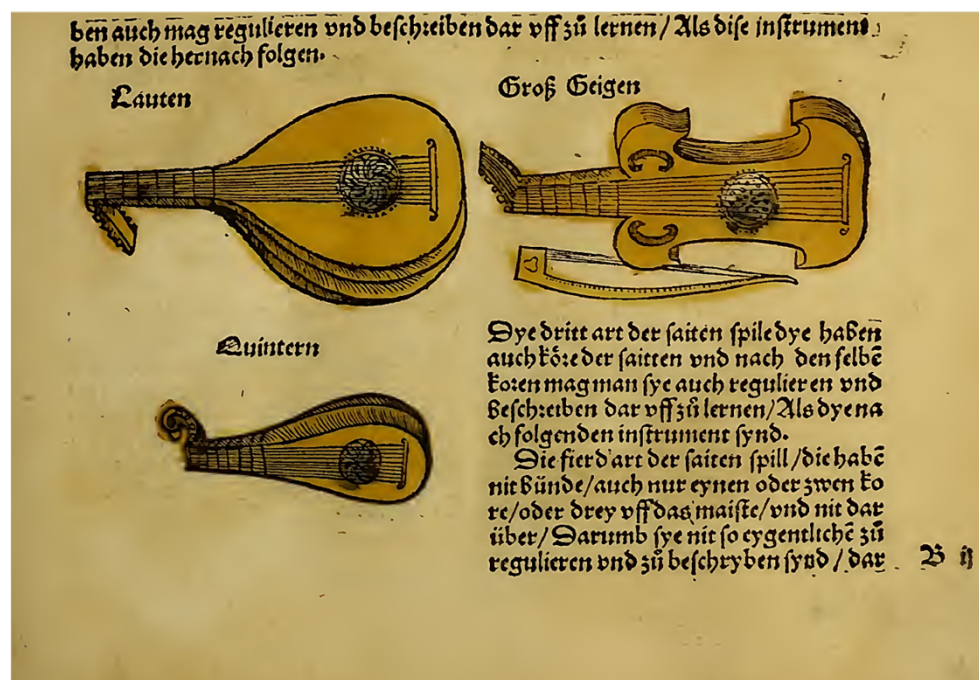 ben auch mag regulieren vnd beschreiben dar vff zů lernen / Als dise instrument
haben die hernach folgen.
Lauten
Groß Geigen
Quintern
Dye dritt art der saiten spile dye haben
auch köre der saitten vnd nach den selbē
koren mag man sye auch regulieren vnd
Beschreiben dar vff zů lernen / Als dye na
ch folgenden instrument synd.
Die fierd art der saiten spill / die habē
nit Bünde / auch nur eynen oder zwen ko
re / oder drey vff das maiste / vnd nit dar
über / Darumb sye nit so eygentlichē zů
regulieren vnd zů beschryben synd / dar
B ij